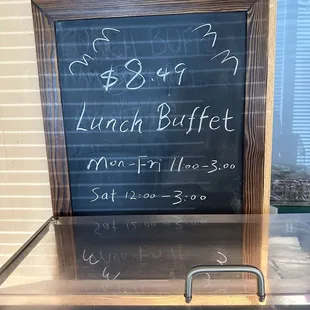 $8.49
Lunch Buffet
Mon-Fri 11:00-3:00
Sat 12:00-3:00